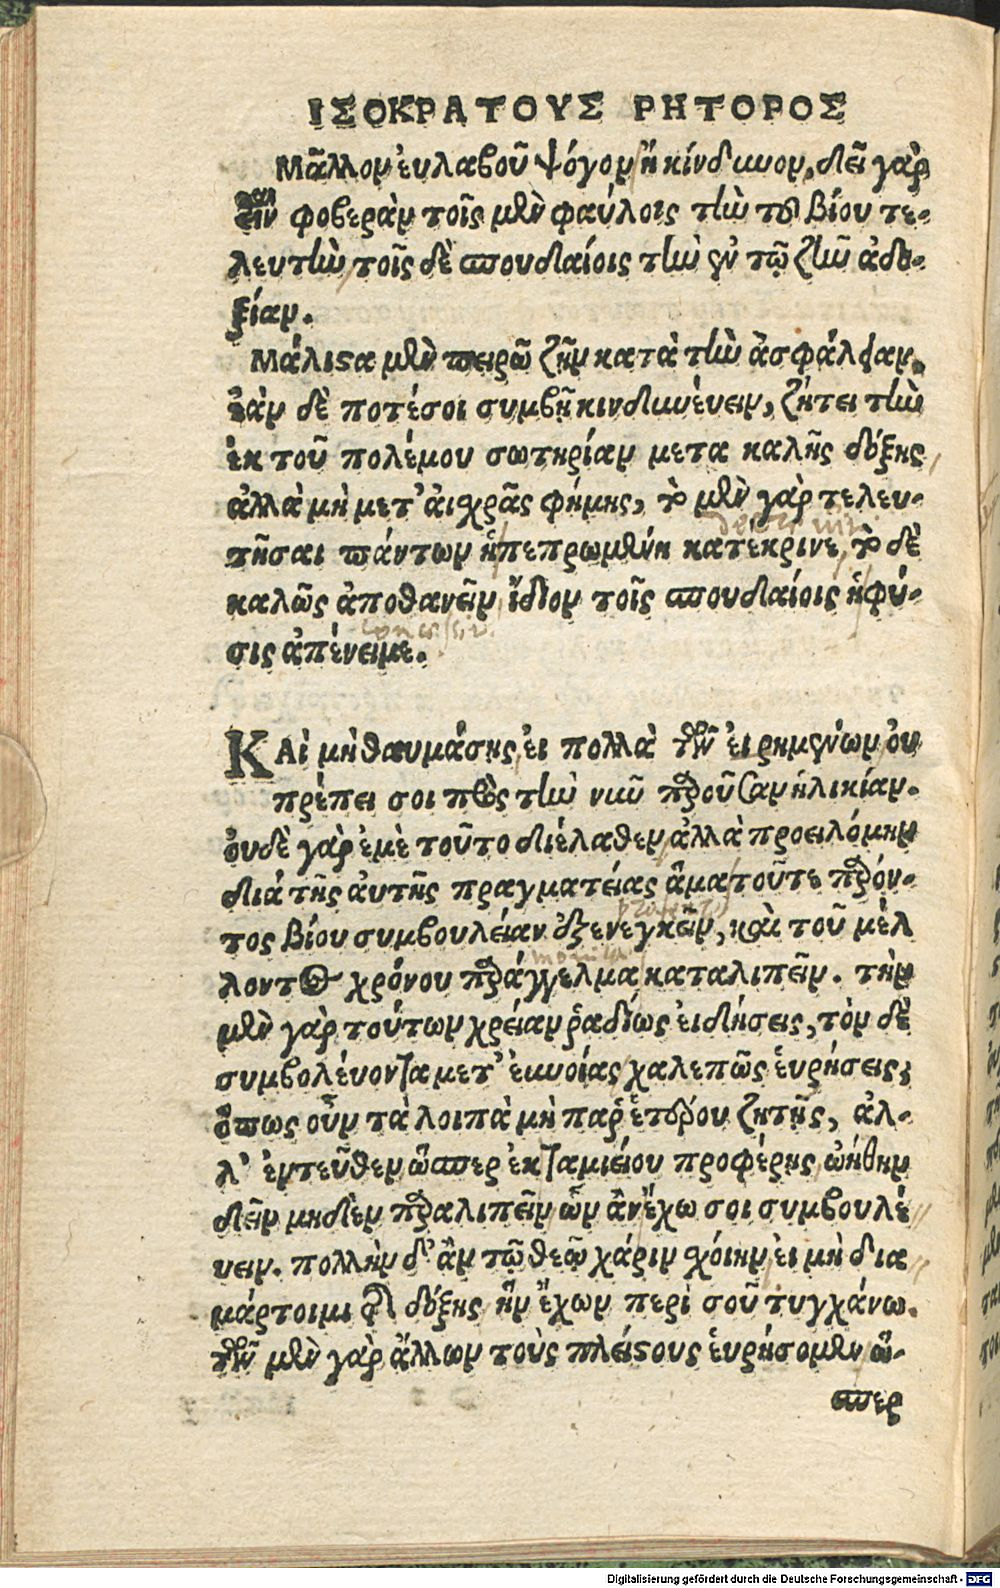 ΙΣΟΚΡΑΤΟΥΣ ΡΗΤΟΡΟΣ
Μᾶλλον ἐυλαβοῦ ψόγον ἢ κίνδυνον, δεῖ γὰρ
εἶναι φοβερὰν τοῖς μὲν φαύλοις τὴν τοῦ βίου τε-
λευτὴν, τοῖς δὲ σπουδαίοις τὴν ἐν τῷ ζῆν ἀδο-
ξίαν.
Μάλιστα μὲν πειρῶ ζῆν κατὰ τὴν ἀσφάλειαν,
ἐὰν δὲ ποτέ σοι συμβῇ κινδυνέυειν, ζήτει τὴν
ἐκ τοῦ πολέμου σωτηρίαν μετα καλῆς δόξης
ἀλλὰ μὴ μετ' ἀιχρᾶς φήμης, τὸ μὲν γὰρ τελευ-
τῆσαι πάντων ἡ πεπρωμένη κατέκρινε, τὸ δὲ
καλῶς ἀποθανεῖν ἴδιον τοῖς σπουδαίοις ἡ φύ-
σις ἀπένειμε.
ΚΑὶ μὴ θαυμάσης, ἐι πολλὰ τῶν ἐιρημένων ὀυ
πρέπει σοι πρὸς τὴν νῦν παροῦσαν ἡλικίαν.
ὀυδὲ γὰρ ἐμὲ τοῦτο διέλαθεν ἀλλὰ προειλόμην
διά τῆς ἀυτῆς πραγματείας ἅμα τοῦτε παρόν-
τος βίου συμβουλείαν ἐξενεγκεῖν, καὶ τοῦ μέλ
λοντος χρόνου παράγγελμα καταλιπεῖν. τὴν
μὲν γὰρ τούτων χρείαν ῥαδίως ἐιδήσεις, τὸν δὲ
συμβολέυοντα μετ' ἐυνοίας χαλεπῶς ἑυρήσεις,
ὅπως οὖν τὰ λοιπὰ μὴ παρ' ἑτέρου ζητῇς, ἀλ-
λ' ἐντεῦθεν ὥσπερ ἐκ ταμιείου προφέρης ὠήθην
δεῖν μηδὲν παραλιπεῖν ὧν ἂν ἔχω σοι συμβουλέ
υειν. πολλὴν δ' ἂν τῷ θεῷ χάριν χόιην ἐι μὴ δια
μάρτοιμι τῆς δόξης ἣν ἔχων περὶ σοῦ τυγχάνω.
τῶν μὲν γὰρ ἄλλων τοὺς πλείστους ἑυρήσομεν ὥ-
σπερ
Digitalisierung gefördert durch die Deutsche Forschungsgemeinschaft - DFG